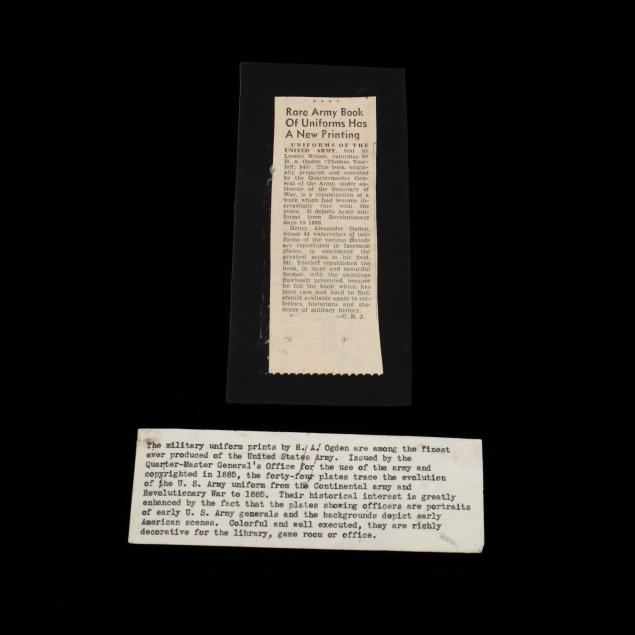 * * * *
Rare Army Book
Of Uniforms Has
A New Printing
UNIFORMS OF THE
UNITED ARMY, text by
Loomis Nelson, paintings by
H. A. Ogden (Thomas Yose-
loff; $40). This book, origin-
ally prepared and executed
by the Quartermaster Gen-
eral of the Army, under au-
thority of the Secretary of
War, is a republication of a
work which had become in-
creasingly rare with the
years. It depicts Army uni-
forms from Revolutionary
days to 1888.
Henry Alexander Ogden,
whose 44 watercolors of uni-
forms of the various periods
are reproduced in facsimile
plates, is considered the
greatest artist in his field.
Mr. Yoseloff republished the
book, in large and beautiful
format, with the paintings
flawlessly presented, because
he felt the book, which has
been rare and hard to find,
should available again to col-
lectors, historians and stu-
dents of military history.
—C. B. J.
The military uniform prints by H. A. Ogden are among the finest
ever produced of the United States Army. Issued by the
Quarter-Master General's Office for the use of the army and
copyrighted in 1885, the forty-four plates trace the evolution
of the U. S. Army uniform from the Continental army and
Revolutionary War to 1885. Their historical interest is greatly
enhanced by the fact that the plates showing officers are portraits
of early U. S. Army generals and the backgrounds depict early
American scenes. Colorful and well executed, they are richly
decorative for the library, game room or office.